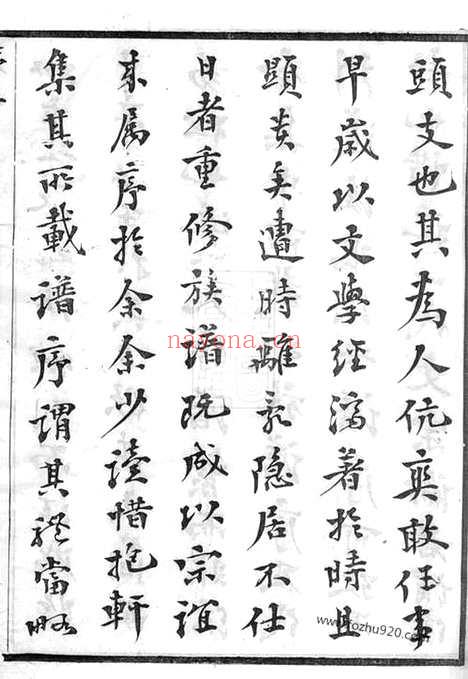 頭支也其為人伉爽敢任事
早歲以文學經濟著於時且
顯矣矣遭時難永隱居不仕
日者重修族譜既成以宗誼
來属序於余余少讀惜抱軒
集其所載譜序謂其體當略
nayona.cn
www.fozhu920.com